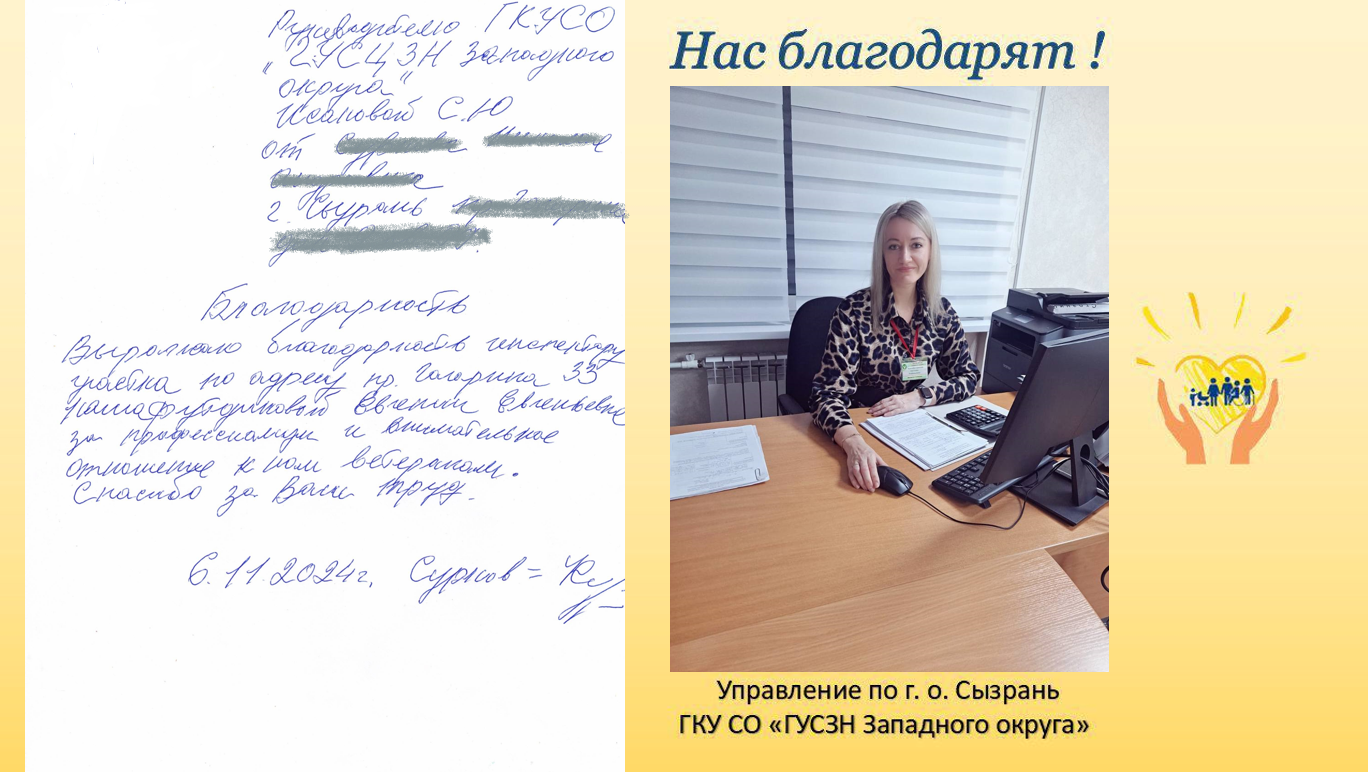 Руководителю ГКУСО
"ГУСЦЗН Западного
округа"
Исановой С.Ю
от
г. Сызрань
Благодарность
Выражаю благодарность инспектору
участка по адресу пр. Гагарина 33
Евгении Евгеньевне
за профессионализм и внимательное
отношение к нам ветеранам.
Спасибо за Ваш труд.
6.11.2024г. Сурков =
Нас благодарят !
Управление по г. о. Сызрань
ГКУ СО «ГУСЗН Западного округа»